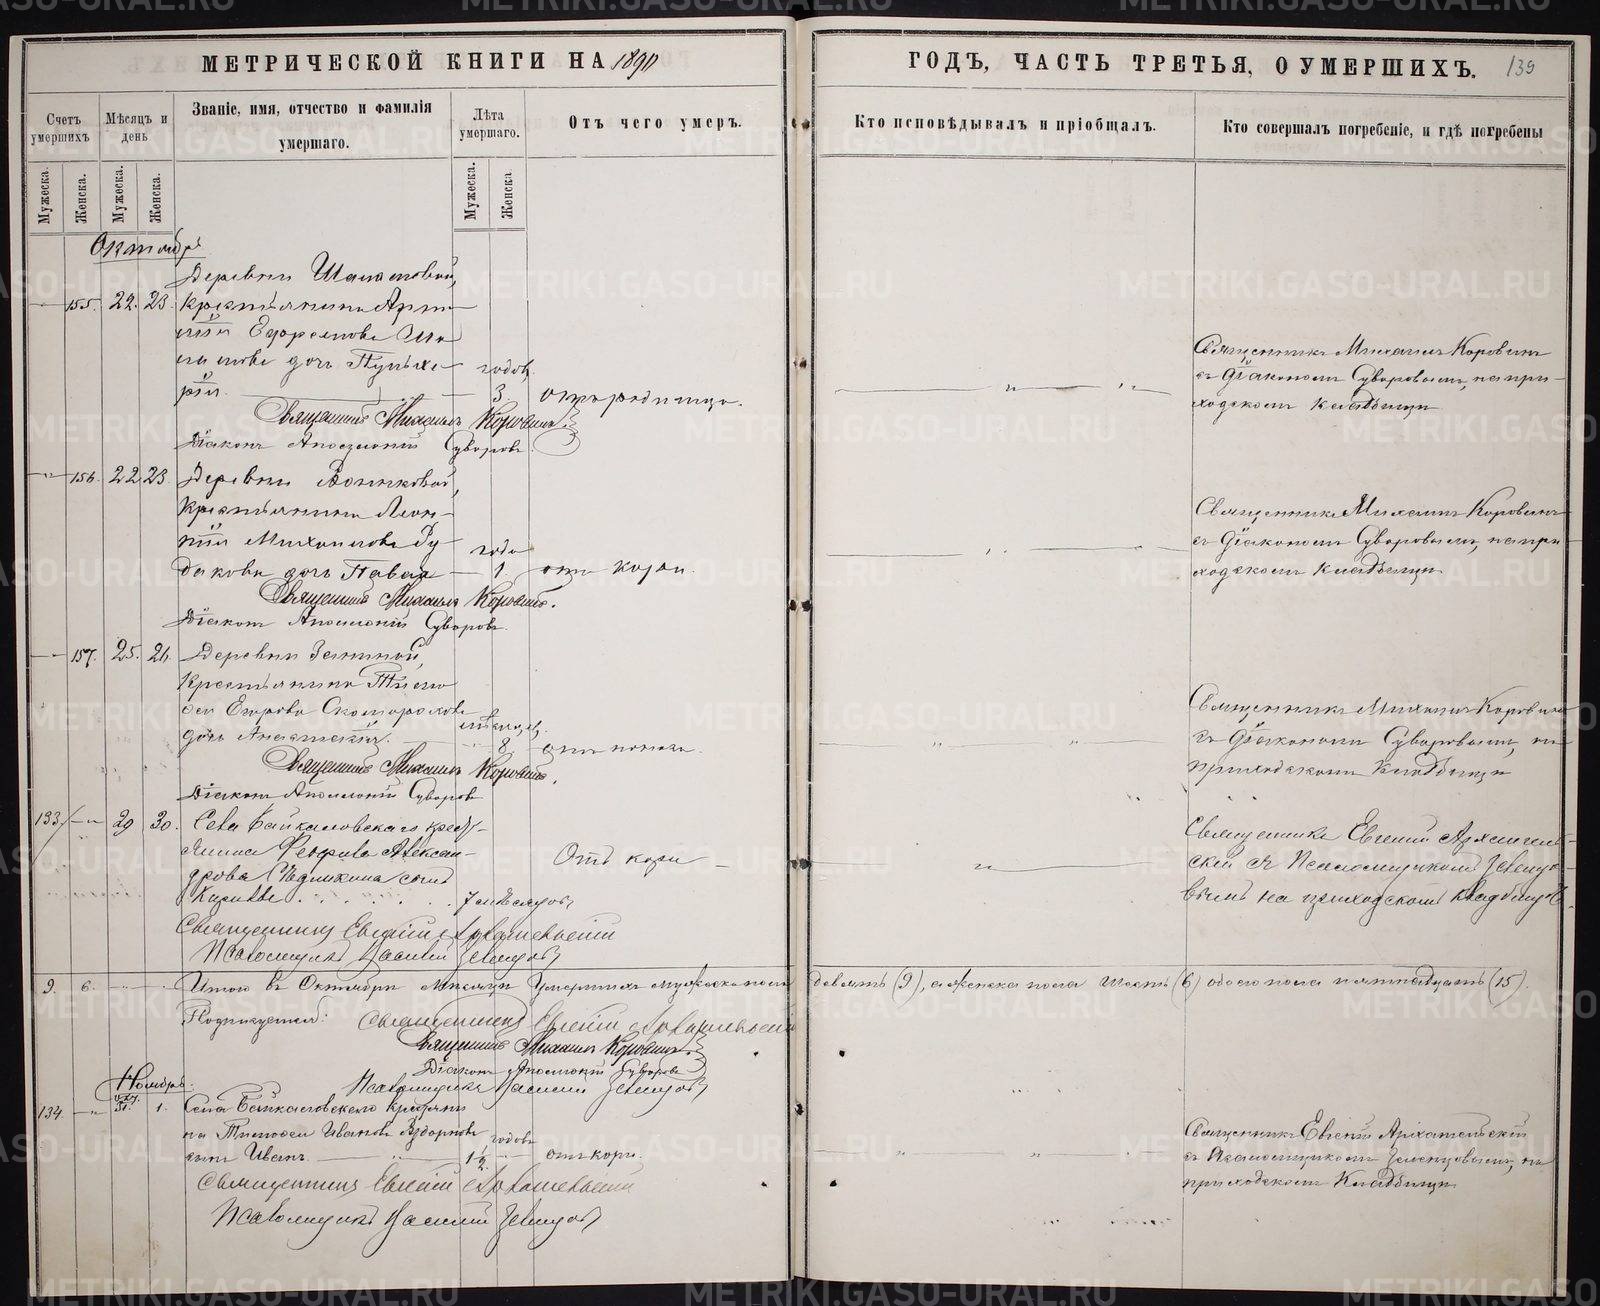 МЕТРИЧЕСКОЙ КНИГИ НА 1890
ГОДЪ, ЧАСТЬ ТРЕТЬЯ, О УМЕРШИХЪ. 139
Счетъ умершихъ
Мѣсяцъ и день
Званіе, имя, отчество и фамилія умершаго.
Лѣта умершаго.
Отъ чего умеръ.
Кто исповѣдывалъ и пріобщалъ.
Кто совершалъ погребеніе, и гдѣ погребены
Мужеска. Женска. Мужеска. Женска. Мужеска. Женска
Октябрь
Деревни
155. 22. 23. крестьянина
Ефремова
дочь Пульхе-
рія. годовъ 3. отъ родимца.
Священникъ Михаилъ Коровинъ
Діаконъ Аполлоній Суворовъ
Священникъ Михаилъ Коровинъ
съ діакономъ Суворовымъ, на при-
ходскомъ кладбищѣ
156. 22 23. Деревни
крестьянина Леон-
тія Михаилова Ру-
дакова дочь года 1. отъ кори.
Священникъ Михаилъ Коровинъ.
Діаконъ Аполлоній Суворовъ.
Священникъ Михаилъ Коровинъ
съ діакономъ Суворовымъ, на при
ходскомъ кладбищѣ
157. 25. 26. Деревни Зениной,
крестьянина Тимо
ѳея Егорова Скоморохова
дочь Анастасія. мѣсяцевъ 8 отъ поноса.
Священникъ Михаилъ Коровинъ.
Діаконъ Аполлоній Суворовъ
Священникъ Михаилъ Коровинъ
съ діакономъ Суворовымъ, на
приходскомъ кладбищѣ
133. 29 30. Села Байкаловскаго крест-
янина Алексан-
дрова сынъ
7 мѣсяцовъ
Отъ кори
Священникъ Евгеній Архангельскій
Псаломщикъ Василій
Священникъ Евгеній Архангель-
скій съ Псаломщикомъ
вымъ на приходскомъ кладбищѣ.
9. 6. Итого въ Октябрѣ мѣсяцѣ умершихъ мужеска пола девять (9), а женска пола шесть (6) обоего пола пятнадцать (15).
Священникъ Евгеній Архангельскій
Священникъ Михаилъ Коровинъ.
Діаконъ Аполлоній Суворовъ
Псаломщикъ Василій
Ноябрь.
134. 31. 1. Села Байкаловскаго крестьяни
на Тимоѳея Иванова
сынъ Иванъ. годовъ 1½ отъ кори.
Священникъ Евгеній Архангельскій
Псаломщикъ Василій
Священникъ Евгеній Архангельскій
съ Псаломщикомъ на
приходскомъ кладбищѣ.
METRIKI.GASO-URAL.RU